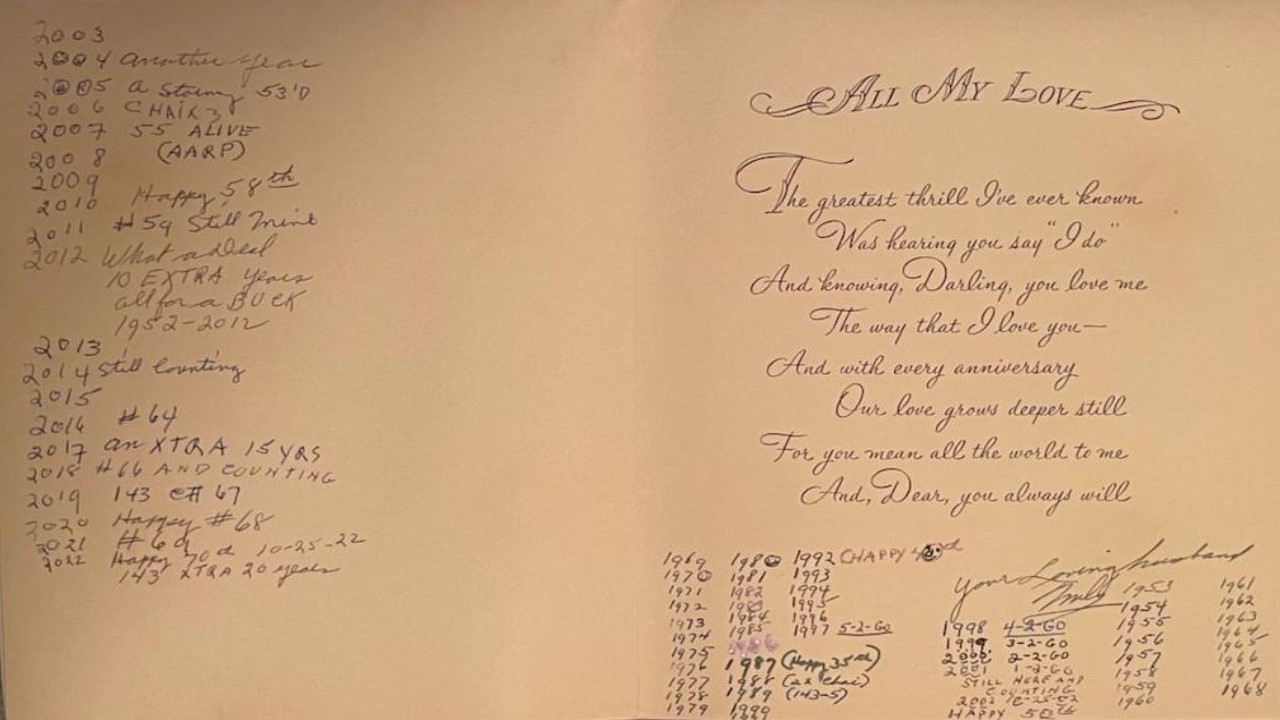 2003
2004 Another Year
2005 a Stormy 53'D
2006 CHAIK 3
2007 55 ALIVE
2008 (AARP)
2009
2010 Happy 58th
2011 #59 Still Mine
2012 What a Deal
10 EXTRA years
all for a BUCK
1952-2012
2013
2014 Still Counting
2015
2016 #64
2017 an XTRA 15 YRS
2018 #66 AND COUNTING
2019 143 #67
2020 Happy #68
2021 #69
2022 Happy 70d 10-25-22
143 XTRA 20 years
All My Love
The greatest thrill I've ever known
Was hearing you say "I do"
And knowing, Darling, you love me
The way that I love you—
And with every anniversary
Our love grows deeper still
For you mean all the world to me
And, Dear, you always will
your Loving husband
1969
1970
1971
1972
1973
1974
1975
1976
1977
1978
1979
1980
1981
1982
1983
1984
1985
1986
1987 (Happy 35th)
1988 (a Chai)
1989 (143-5)
1990
1992 (HAPPY
1993
1994
1995
1996
1997 5-2-GO
1998 4-2-GO
1999 3-2-GO
2000 2-2-GO
2001 1-2-GO
STILL HERE AND
COUNTING
2002 10-25-02
HAPPY 50th
1953
1954
1955
1956
1957
1958
1959
1960
1961
1962
1963
1964
1965
1966
1967
1968